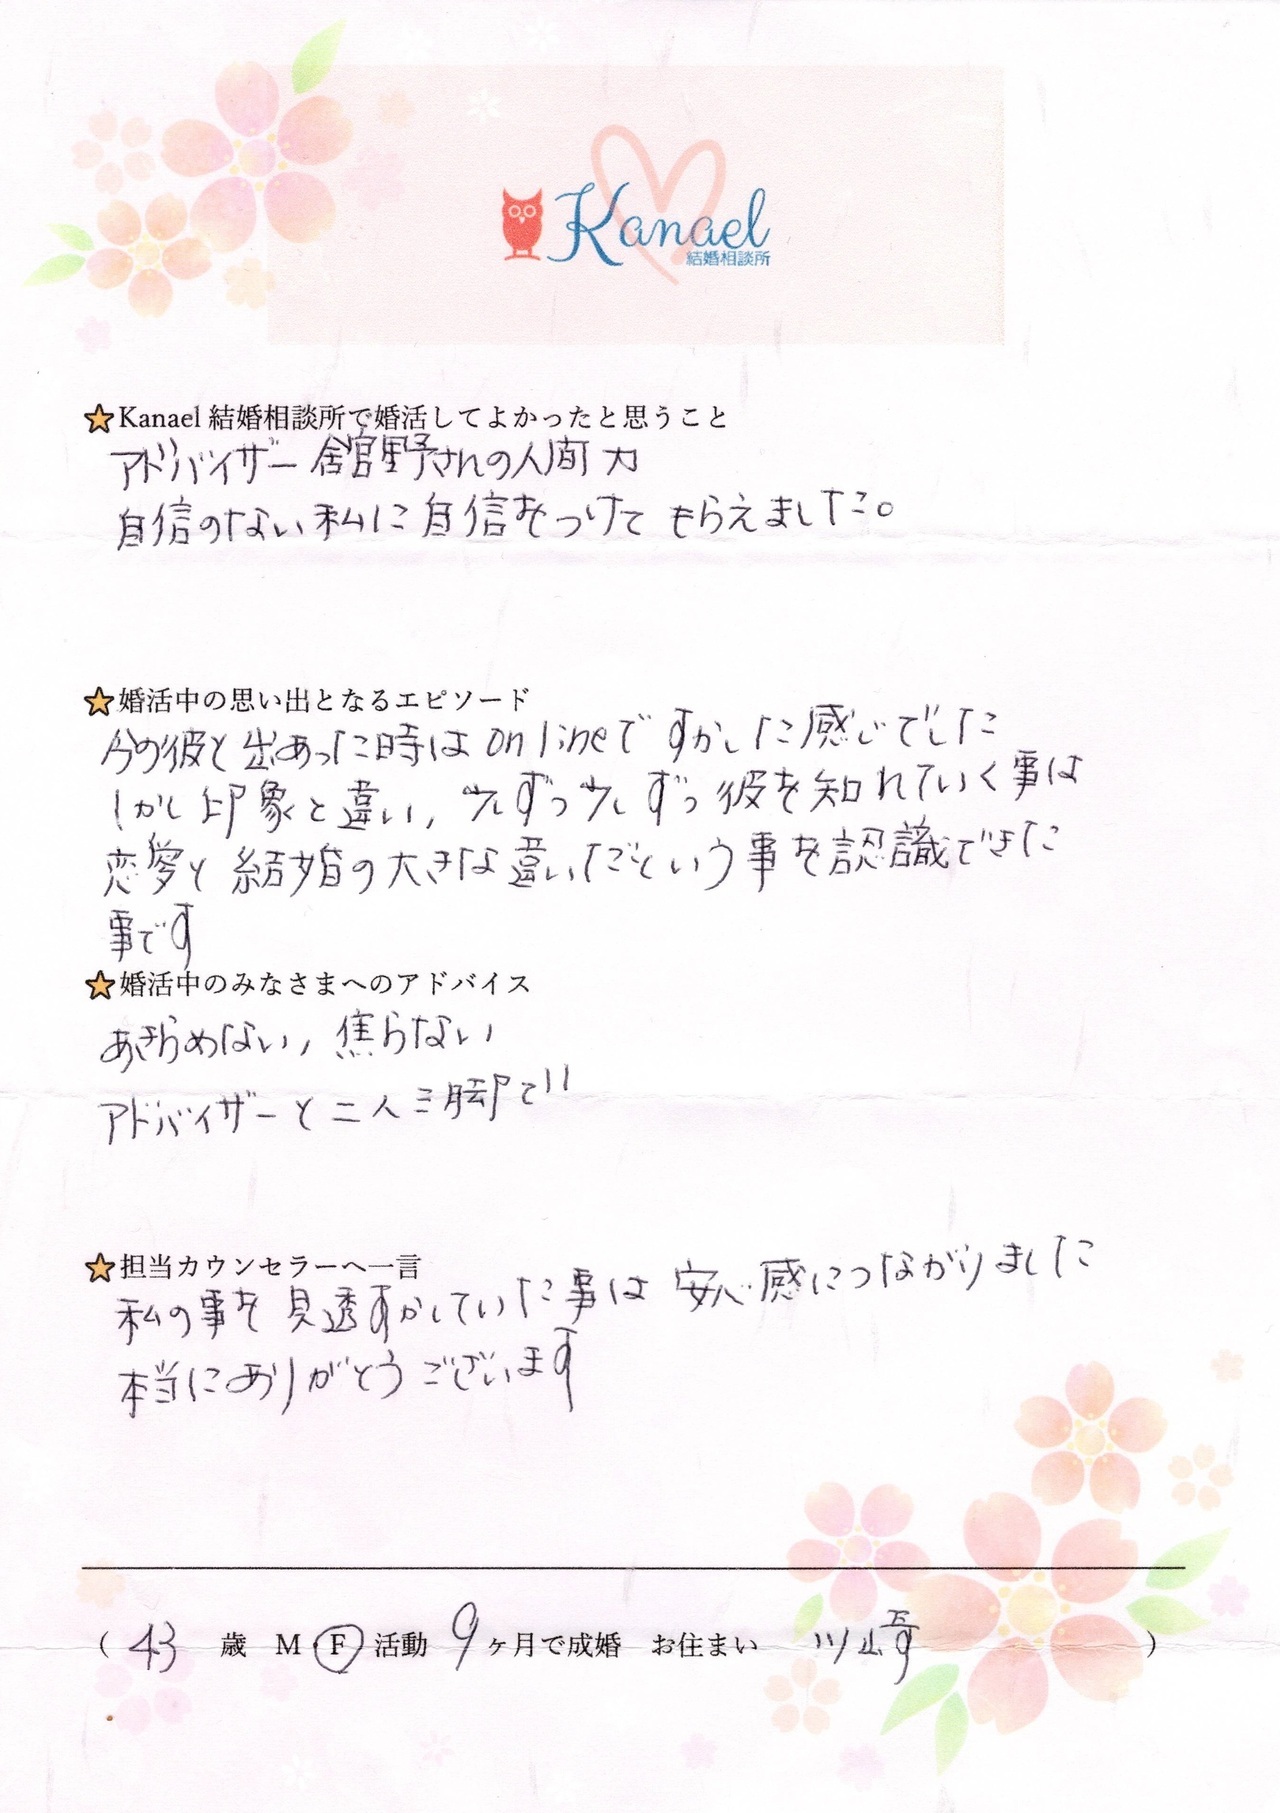 Kanael
結婚相談所
Kanael 結婚相談所で婚活してよかったと思うこと
アドバイザー 舘野さんの人間力
自信のない私に自信をつけてもらえました。
婚活中の思い出となるエピソード
今の彼と出あった時は on lineで すかした感じでした
しかし印象と違い, 少しずつ少しずつ彼を知れていく事は
恋愛と結婚の大きな違いだという事を認識できた
事です
婚活中のみなさまへのアドバイス
あきらめない, 焦らない
アドバイザーと二人三脚で!!
担当カウンセラーへ一言
私の事を見透すかしていた事は 安心感につながりました
本当にありがとうございます
( 43 歳 M・F 活動 9 ヶ月で成婚 お住まい 川崎 )